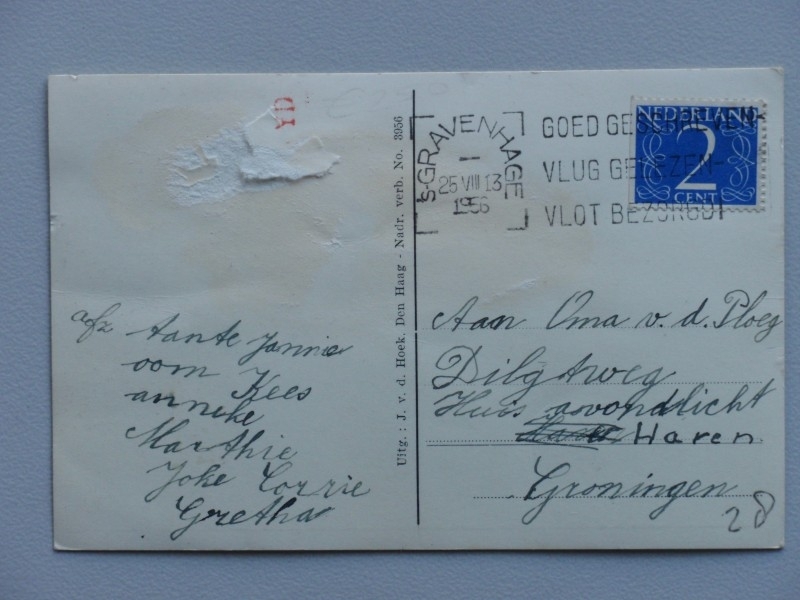 YD
afz Tante Jannie
oom Kees
anneke
Marthie
Joke Corrie
Gretha
Uitg.: J. v. d. Hoek. Den Haag - Nadr. verb. No. 3956
'S-GRAVENHAGE
25 VIII 13
1956
GOED GESCHREVEN-
VLUG GELEZEN-
VLOT BEZORGD!
NEDERLAND
2
CENT
Aan Oma v. d. Ploeg
Dilgtweg
Huis avondlicht
Haren
Groningen
28